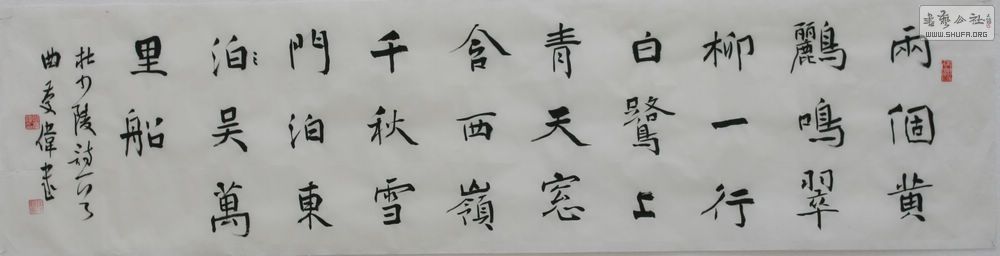 兩個黄
鸝鳴翠
柳一行
白鷺上
青天窓
含西嶺
千秋雪
門泊東
泊〻吴萬
里船
杜少陵詩
曲慶偉書
書藝公社
WWW.SHUFA.ORG